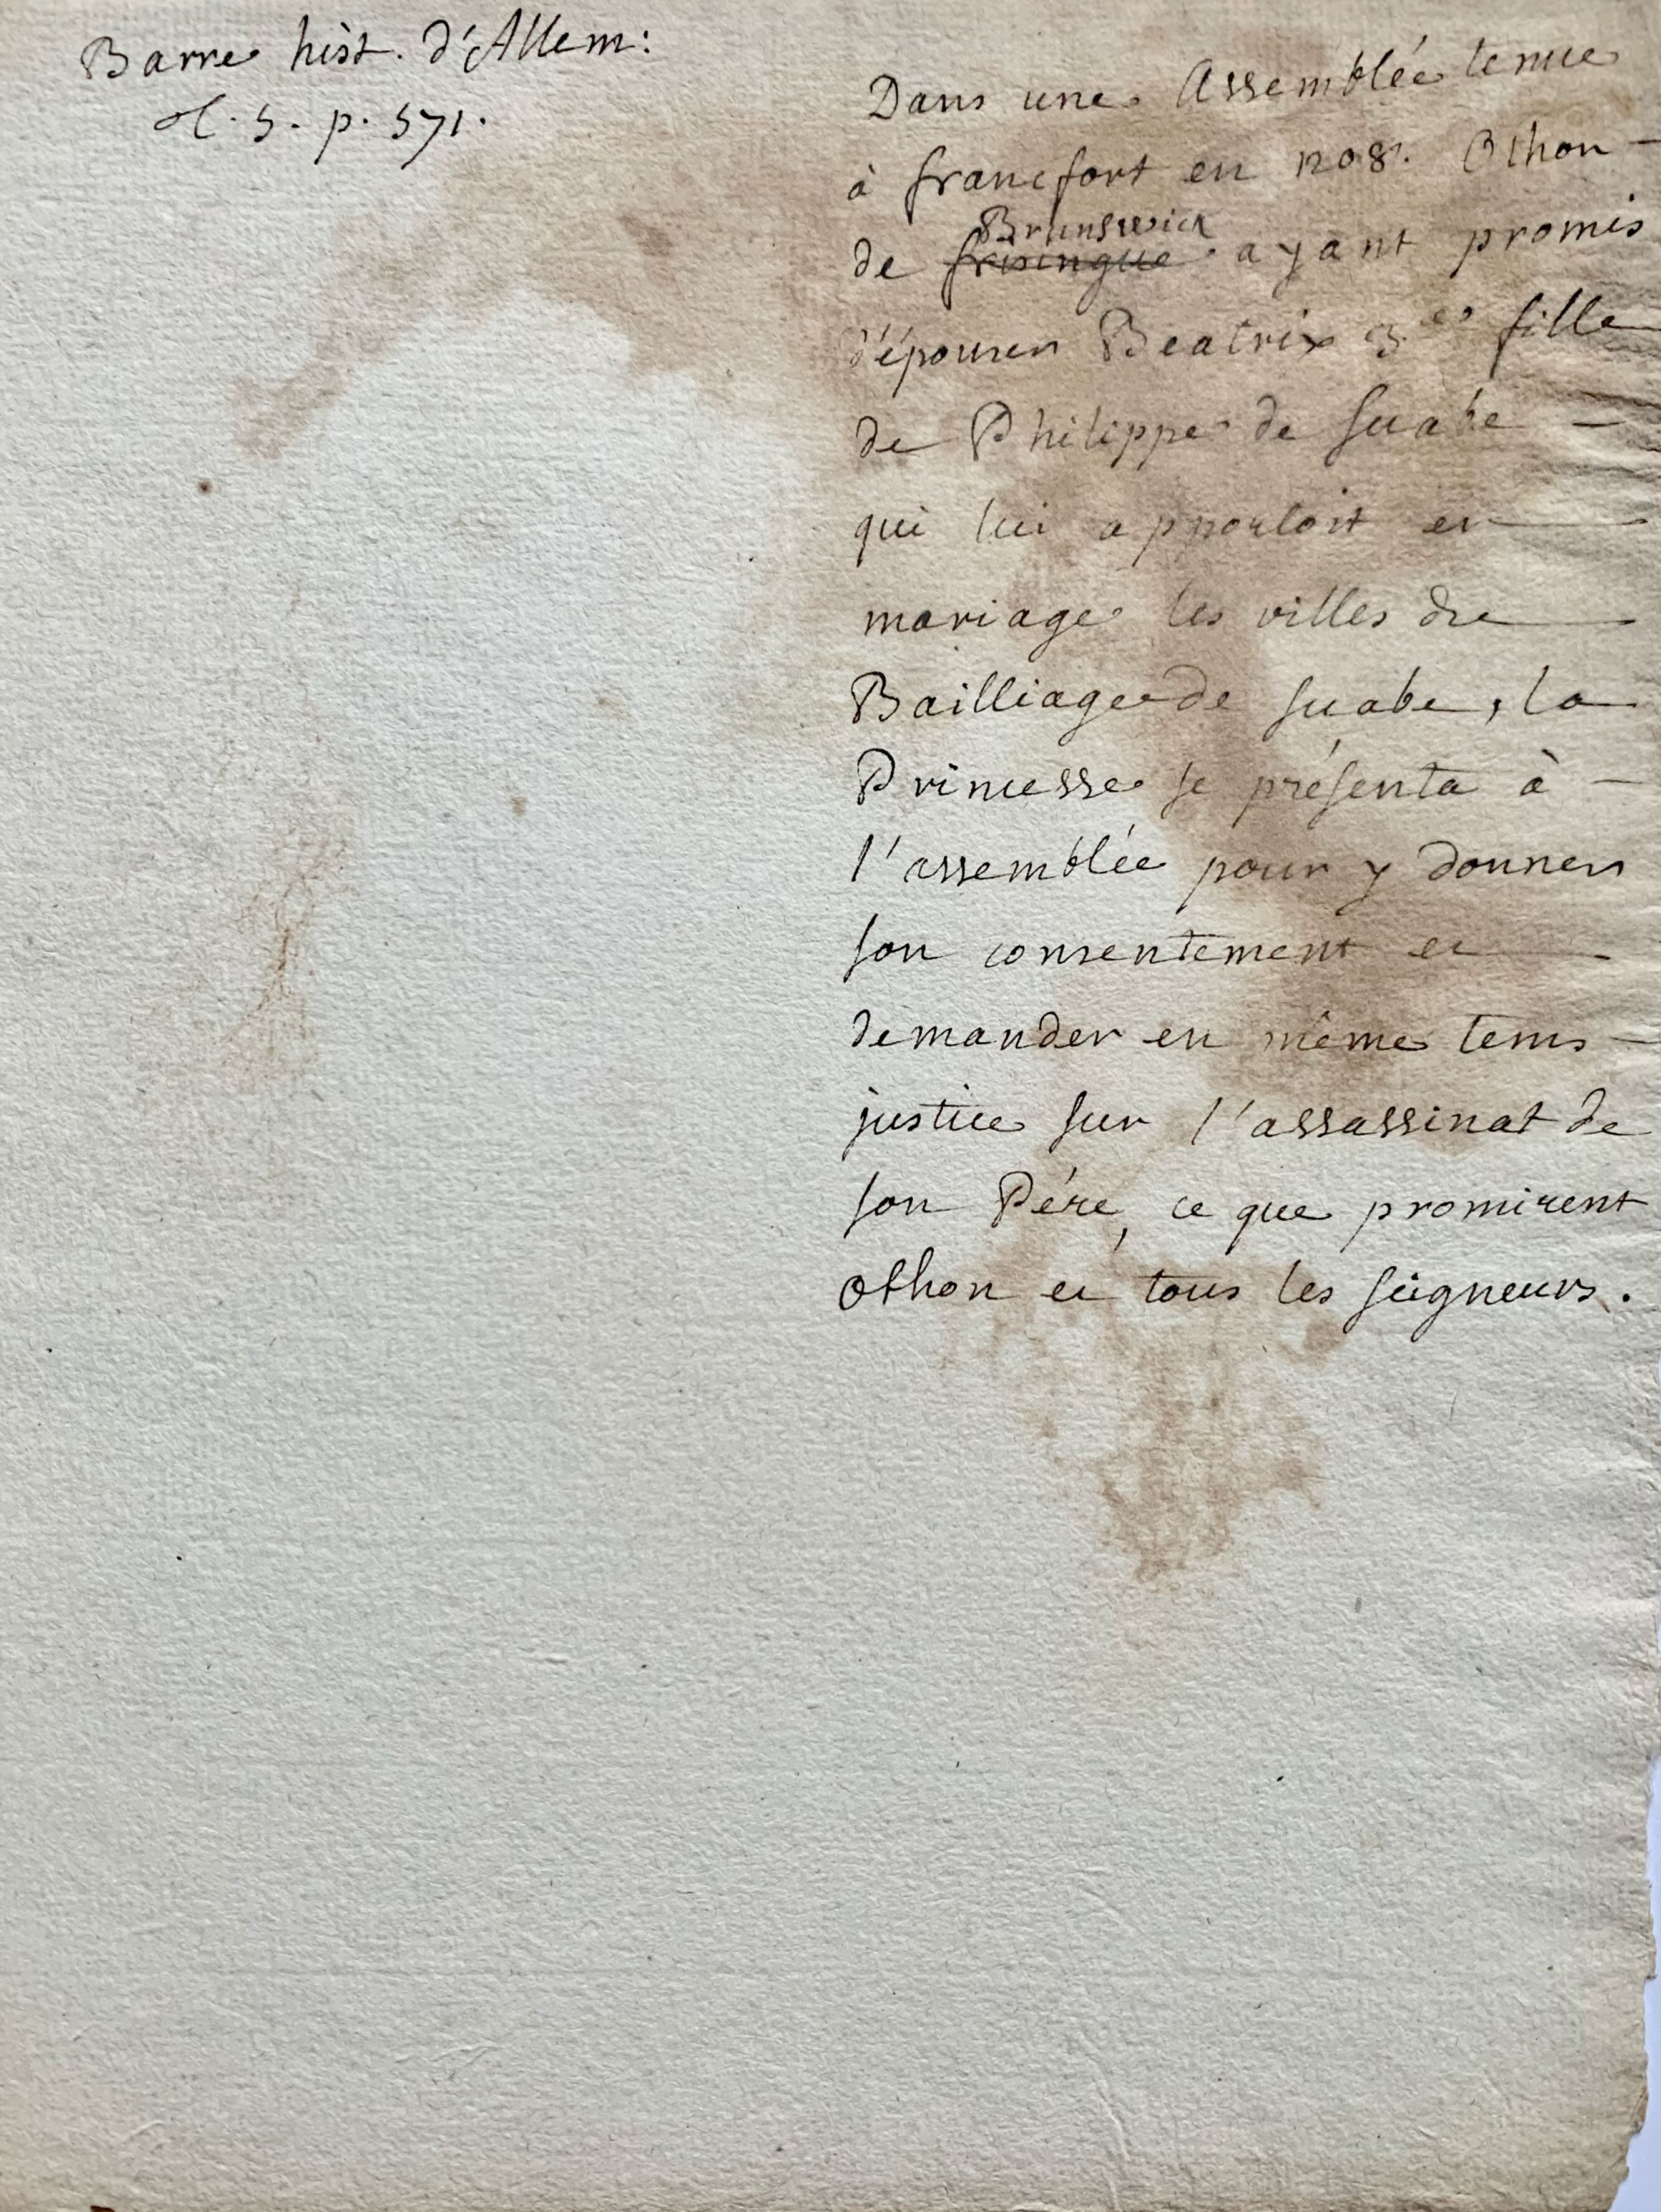 Barre hist. d'Allem:
t. 5. p. 571.
Dans une Assemblée tenue
à francfort en 1208. Othon
Brunswick
de frisingue ayant promis
d'épouser Beatrix 3.e fille
de Philippe de Suabe
qui lui apportoit en
mariage les villes du
Bailliage de Suabe, la
Princesse se présenta à
l'assemblée pour y donner
son consentement et
demander en même tems
justice sur l'assassinat de
son Pére, ce que promirent
Othon et tous les seigneurs.